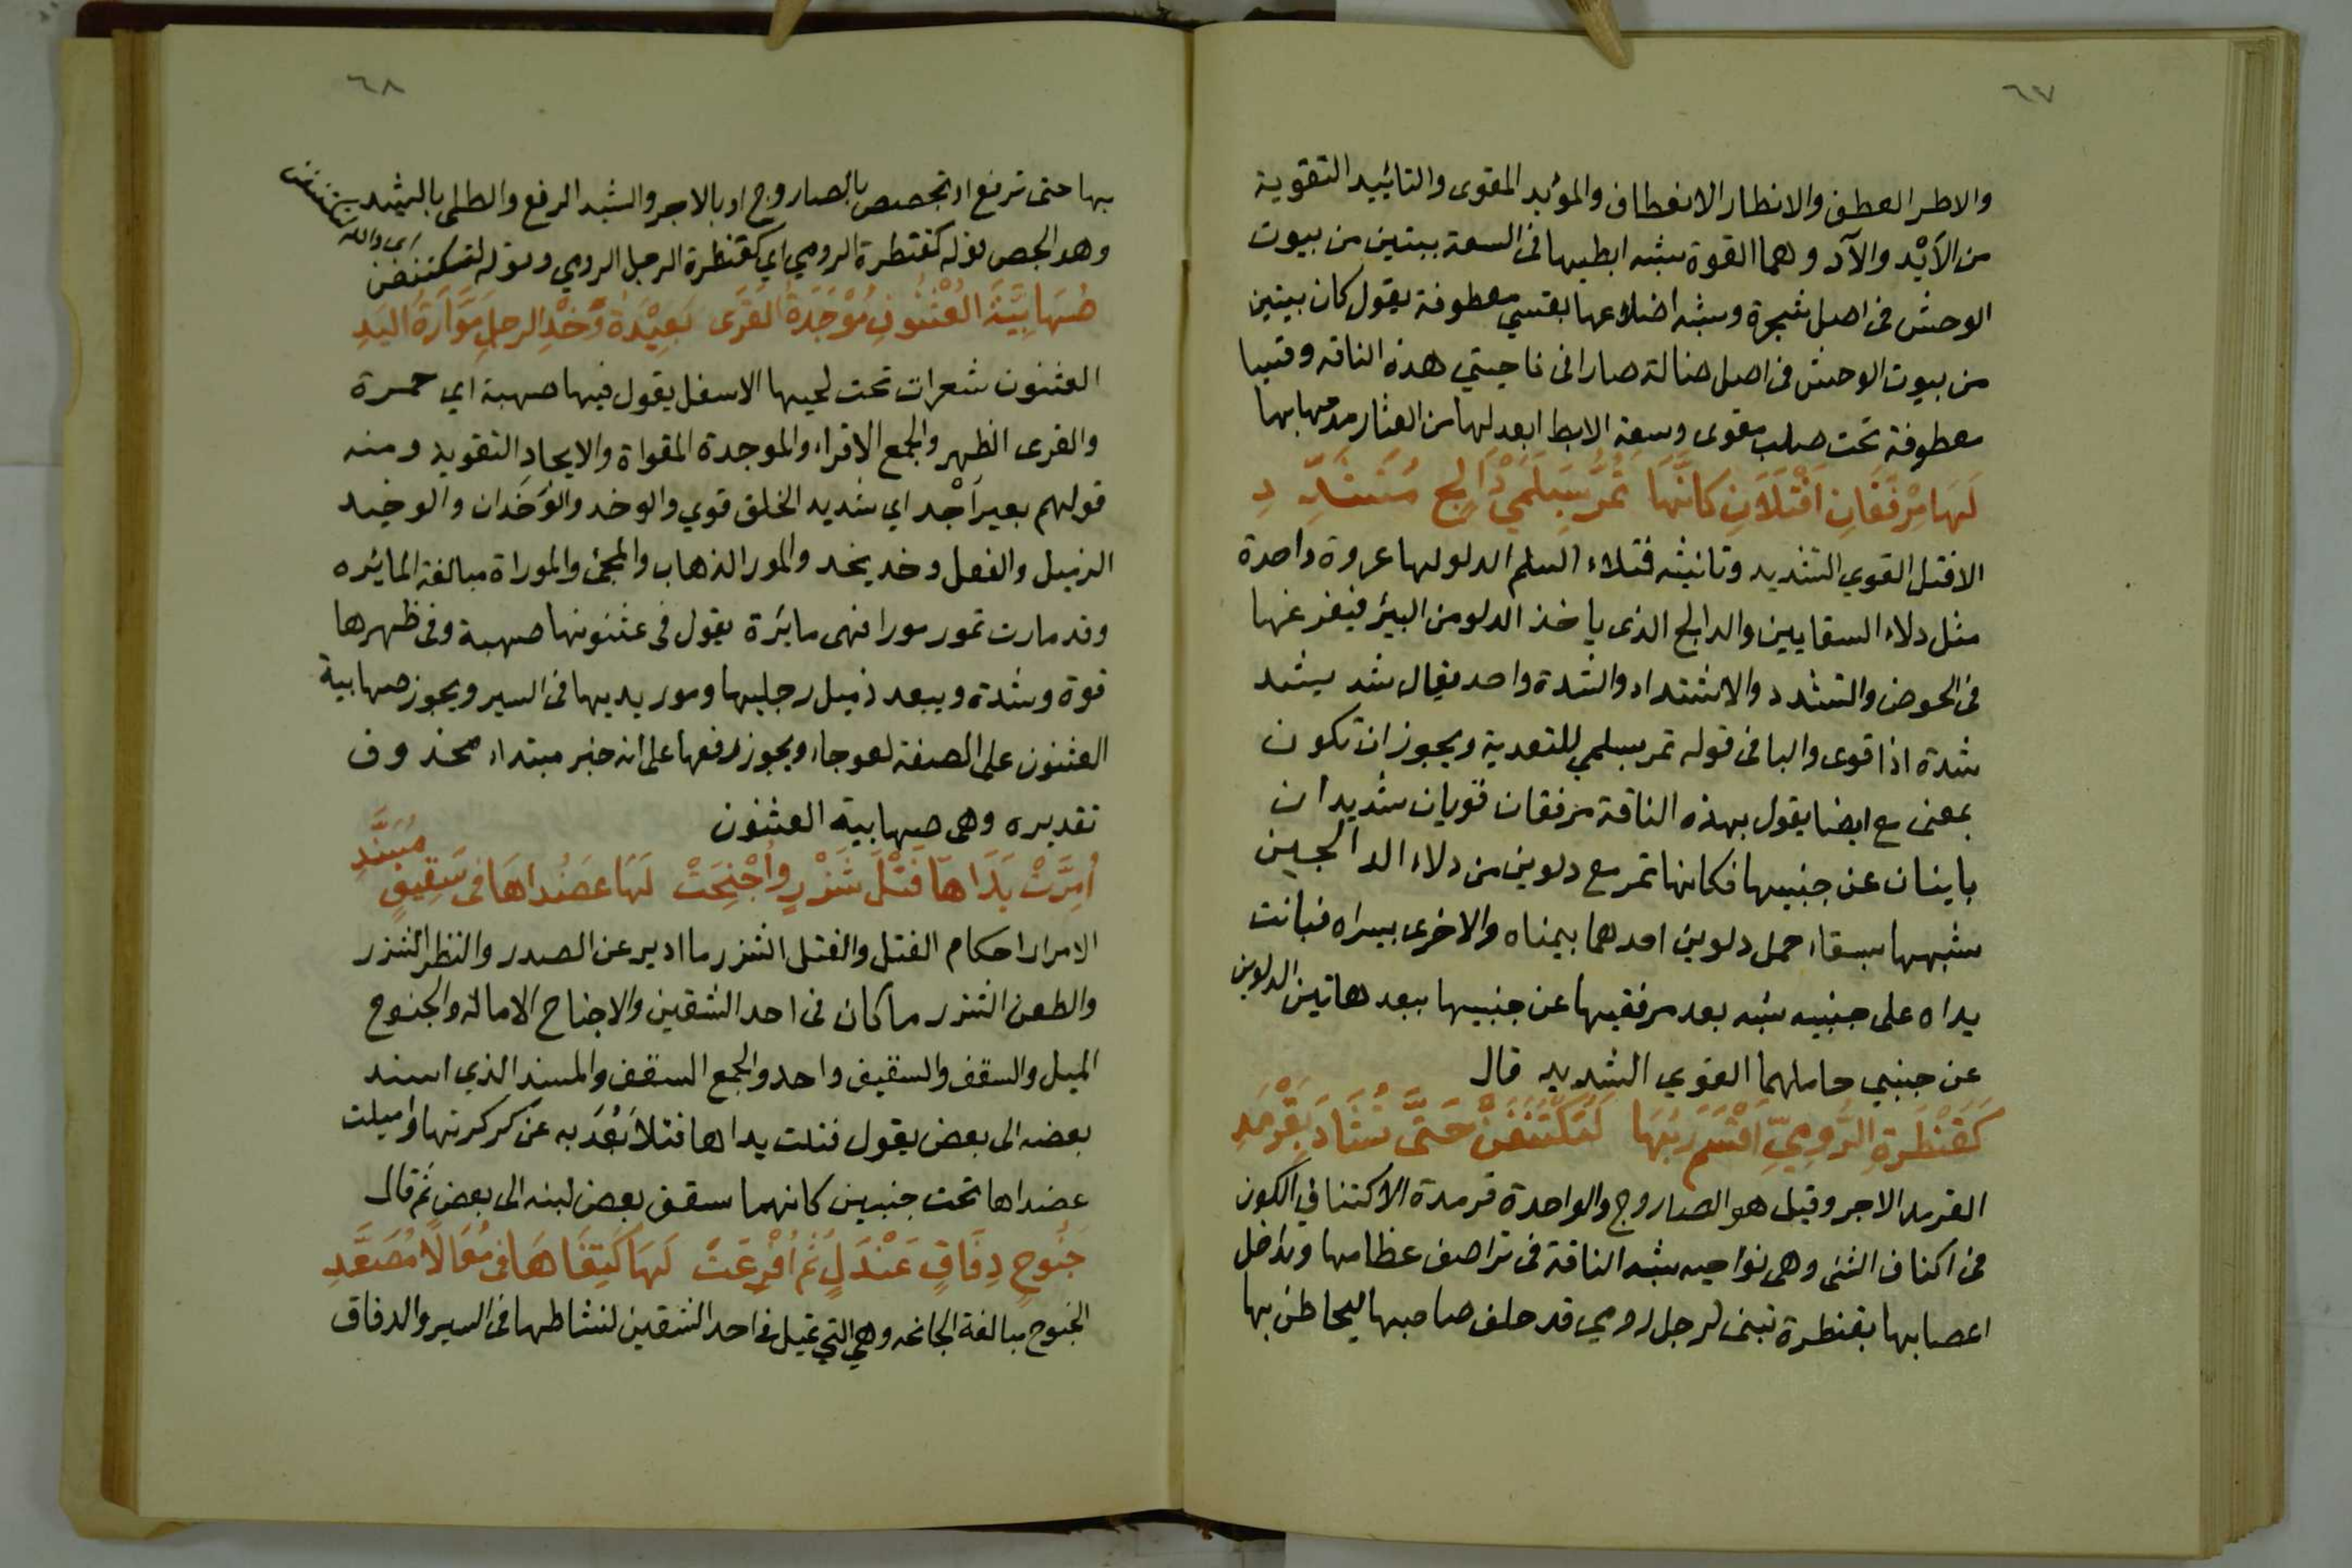 ٦٧
والاطر العطف والانطار الانعطاف والمؤيد المقوى والتائييد التقوية
من الأَيْد والآد وهما القوة يشبه ابطيها فى السعة ببيتين من بيوت
الوحش فى اصل شجرة ويشبه اضلاعها بقسي معطوفة يقول كان بيتين
من بيوت الوحش فى اصل ضالة صارا فى ناحيتي هذه الناقه وقسيا
معطوفة تحت صلب مقوى وسعة الابط ابعد لها من العثار مدحها بها
لَهَا مِرْفَقَانِ اَفْتَلَانِ كَانَّهَا تَمُرُّ بِسَلْمَيْ دَالِجٍ مُتَشَدِّدِ
الافتل القوي الشديد وتانيثه فتلاء السلم الدلو لها عروة واحدة
مثل دلاء السقايين والدالج الذى ياخذ الدلو من البيئر فيفرغها
فى الحوض والتشدد والاشتداد والشدة واحد يقال شد يشد
شدة اذا قوى والبا فى قوله تمر بسلمي للتعدية ويجوز ان تكون
بمعنى مع ايضا يقول بهذه الناقة مرفقان قويان شديدان
باينان عن جنبيها فكانها تمر مع دلوين من دلاء الدالجين
شبهها بسقاء حمل دلوين احدهما بيمناه والاخرى بيسراه فبانت
يداه على جنبيه شبه بعد مرفقيها عن جنبيها ببعد هاتين الدلوين
عن جنبي حاملهما القوي الشديد قال
كَقَنْطَرَةِ الرُّومِيِّ اَقْسَمَ رَبُّهَا لَتُكْتَنَفَنْ حَتَّى تُشَادَ بِقَرْمَدِ
القرمد الاجر وقيل هو الصاروج والواحدة قرمدة الاكتناف الكون
فى اكناف الشى وهى نواحيه شبه الناقة فى تراصف عظامها وتداخل
اعصابها بقنطرة تبنى لرجل رومي قد حلف صاحبها ليحاطن بها
٦٨
بها حتى ترفع او تجصص بالصاروج او بالاجر والشيد الرفع والطلى بالشيد
وهو الجص قوله كقنطرة الرومي اي كقنطرة الرجل الرومي وقوله لتكتنفن
اى والله
صُهَابِيَّةُ العُثْنُونِ مُوْجَدَةُ القَرَى بَعِيْدَةُ وَخْدِ الرجلِ مَوَّارَةُ اليَدِ
العثنون شعرات تحت لحيها الاسفل يقول فيها صهبة اي حمرة
والقرى الظهر والجمع الاقراء والموجدة المقواة والايجاد التقويد ومنه
قولهم بعير اُجْد اي شديد الخلق قوي والوخد والوَخَدان والوخيد
الزميل والفعل وخد يخد والمور الذهاب والمجئ والموراة مبالغة المائيره
وقد مارت تمور مورا فهى مايرة يقول فى عثنونها صهبة وفى ظهرها
قوة وشدة ويبعد ذميل رجليها ومور يديها فى السير ويجوز صهابية
العثنون على الصفة لعوجاء ويجوز رفعها على انه خبر مبتداء محذوف
تقديره وهى صهابية العثنون
أُمِرَّتْ يَدَاهَا فَتْلَ شَزْرٍ وأُجْنِحَتْ لَهَا عَضُدَاهَا فى سَقِيفٍ مُسَنَّدِ
الامرار احكام الفتل والفتل الشزر ما ادير عن الصدر والنظر الشزر
والطعن الشزر ما كان فى احد الشقين والاجناح الامالة والجنوح
الميل والسقف والسقيف واحد والجمع السقف والمسند الذي اسند
بعضه الى بعض يقول فتلت يداها فتلا بَعُدَ به عن كركرتها واميلت
عضداها تحت جنبين كانهما سقف بعض لبنه الى بعض ثم قال
جَنُوحٍ دِفَاقٍ عَنْدَلٍ ثُمَّ اُفْرِعَتْ لَهَا كَتِفَاهَا فى مُعَالًا مُصَعَّدِ
الجنوح مبالغة الجانحه وهي التي تميل فى احد الشقين لنشاطها فى السير والدفاق